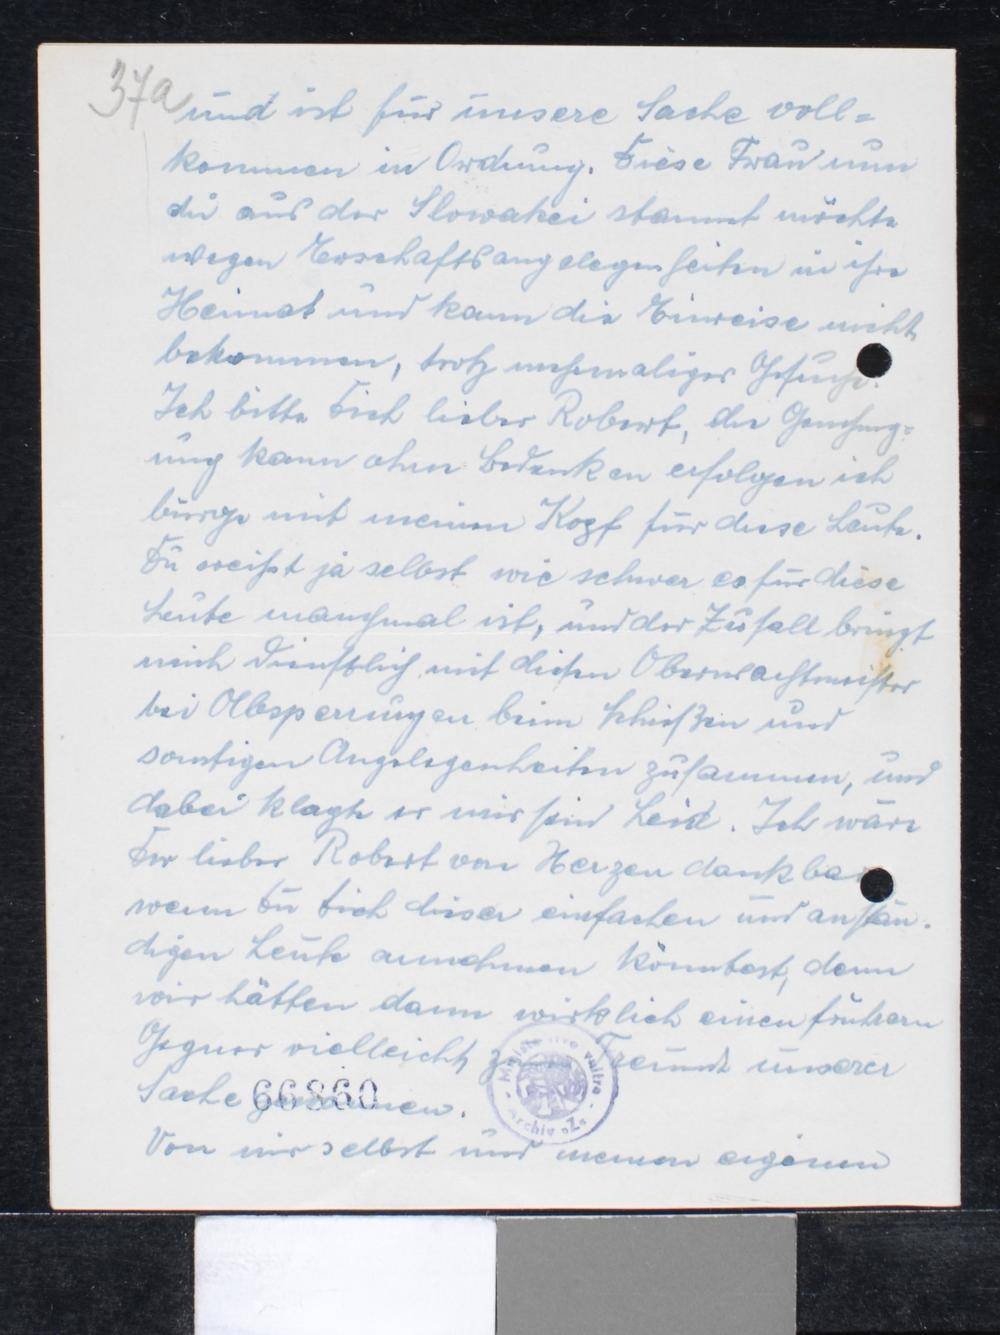 37a
und ist für unsere Sache voll=
kommen in Ordnung. Diese Frau nun
die aus der Slowakei stammt möchte
wegen Erbschaftsangelegenheiten in ihre
Heimat und kann die Einreise nicht
bekommen, trotz mehrmaliger Gesuche.
Ich bitte Dich lieber Robert, die Genehmig=
ung kann ohne Bedenken erfolgen ich
bürge mit meinem Kopf für diese Leute.
Du weißt ja selbst wie schwer es für diese
Leute manchmal ist, und der Zufall bringt
mich dienstlich mit diesen Oberwachtmeister
bei Absperrungen beim Schießen und
sonstigen Angelegenheiten zusammen, und
dabei klagte er mir sein Leid. Ich wäre
Dir lieber Robert von Herzen dankbar
wenn Du Dich dieser einfachen und anstän-
digen Leute annehmen könntest, denn
wir hätten dann wirklich einen frühern
Gegner vielleicht zum Freund unserer
Sache gewonnen.
66860
Ministerstvo vnitra
Archiv
Von mir selbst und meinen eigenen